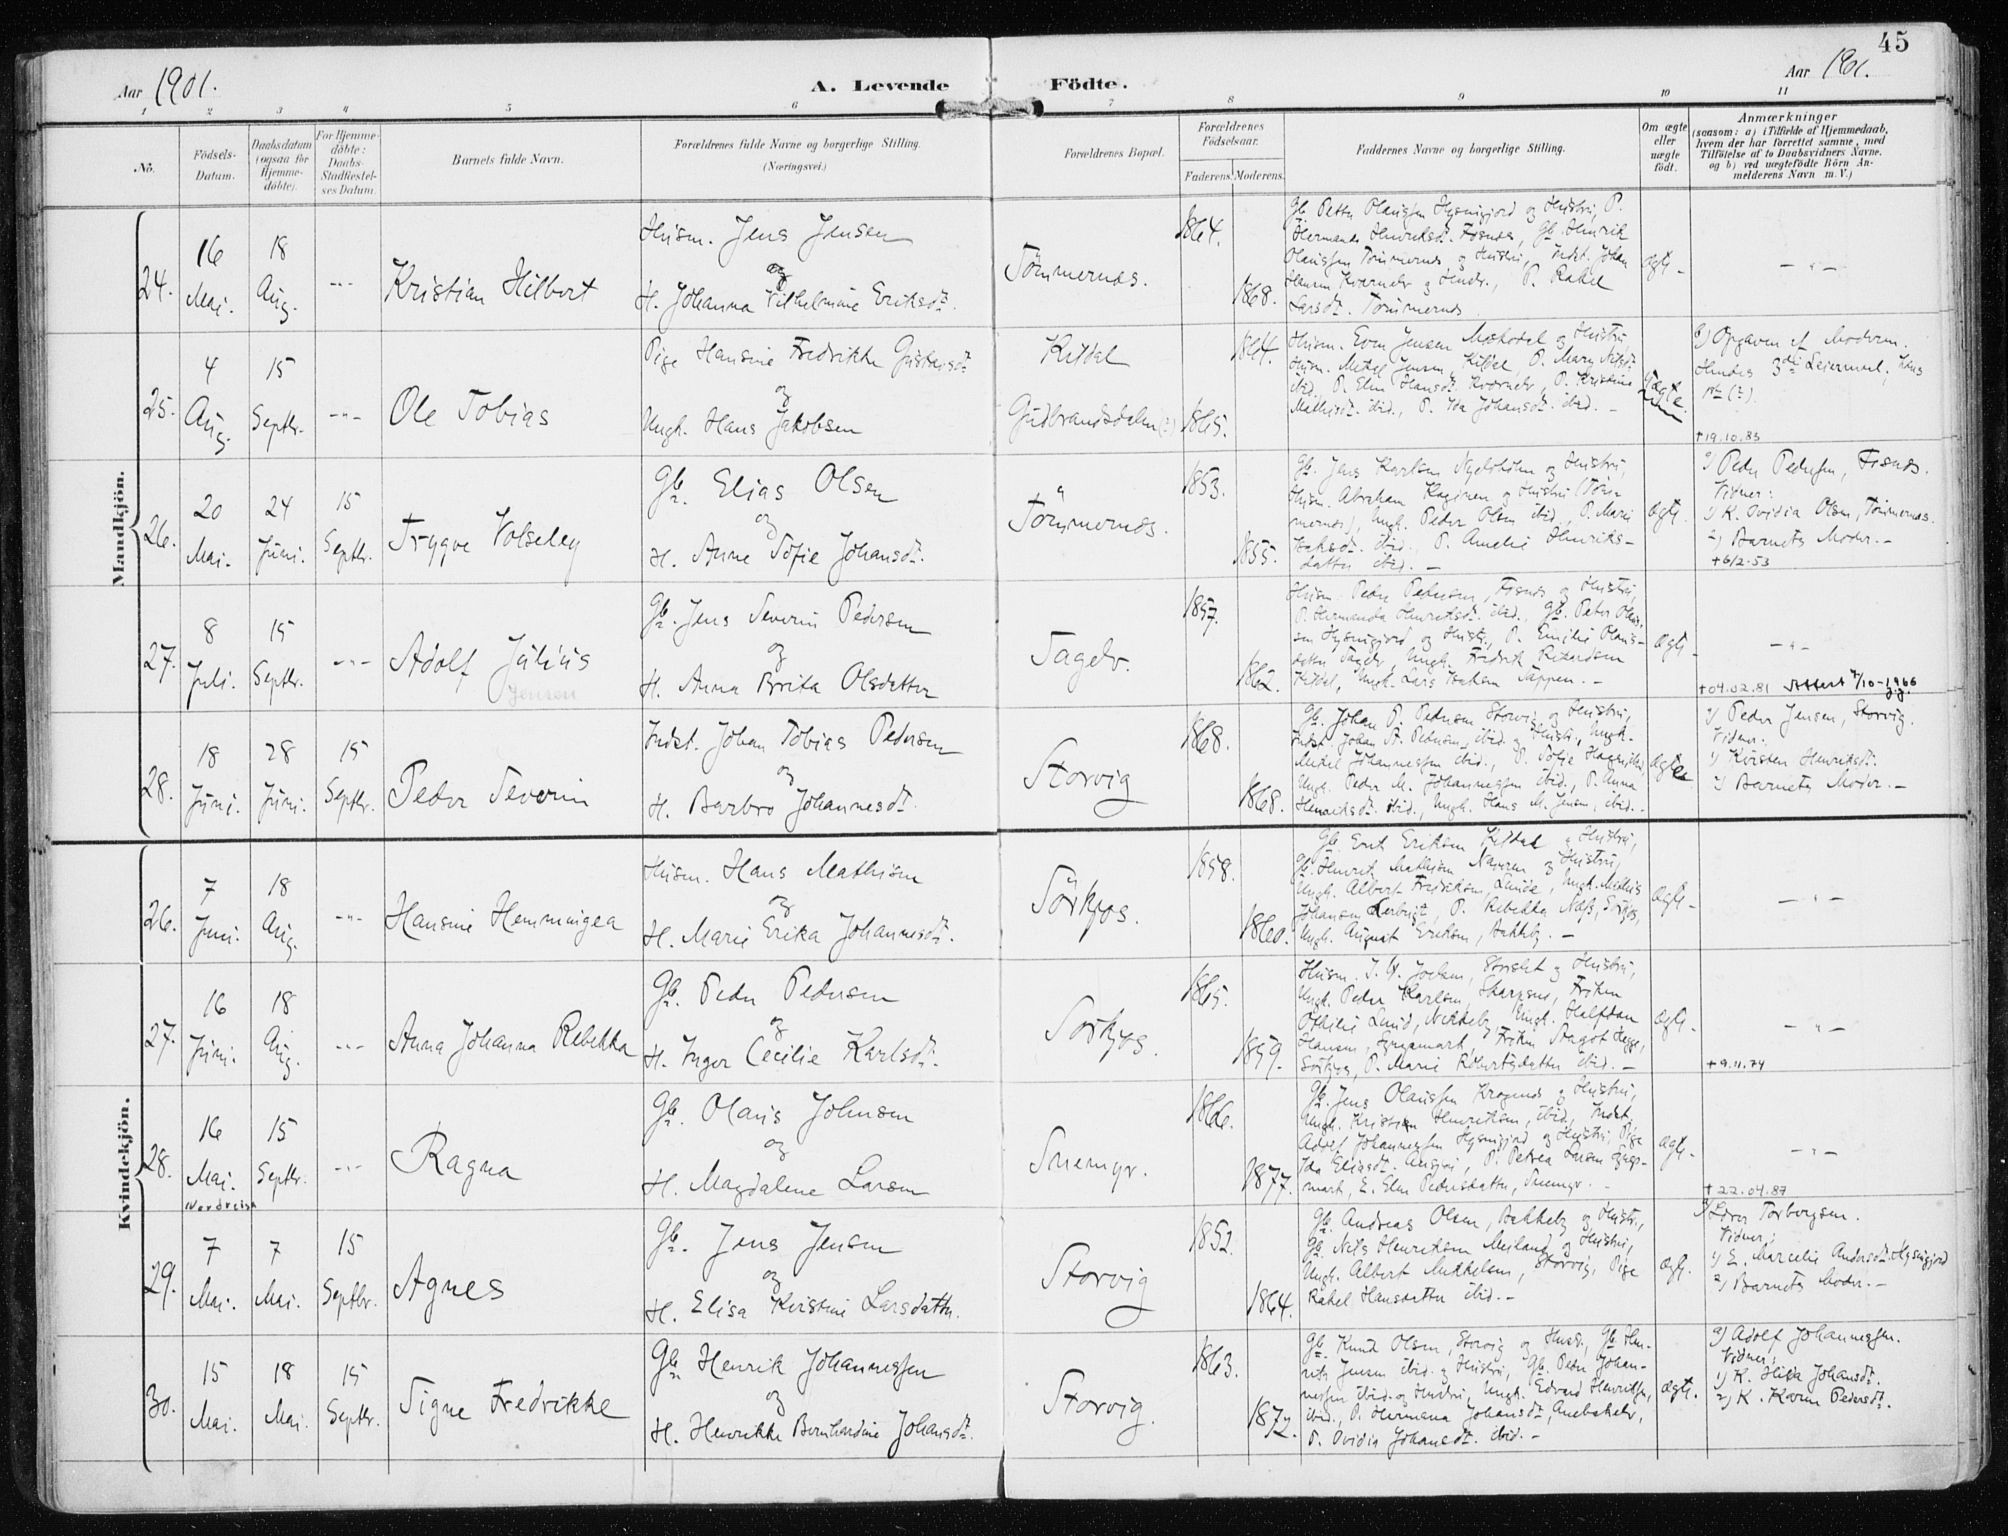 45
Aar 1901.
A. Levende Födte.
Aar 1901.
1 2 3 4 5 6 7 8 9 10 11
No.
Födsels-Datum.
Daabsdatum (ogsaa for Hjemme-döbte).
For Hjemme-döbte: Daabs-Stadfæstel-ses Datum.
Barnets fulde Navn.
Forældrenes fulde Navne og borgerlige Stilling.
(Næringsvei.)
Forældrenes Bopæl.
Forældrenes Födselsaar.
Faderens. Moderens.
Faddernes Navne og borgerlige Stilling.
Om ægte eller uægte födt.
Anmærkninger
(saasom: a) i Tilfælde af Hjemmedaab, hvem der har forrettet samme, med Tilföielse af to Daabsvidners Navne, og b) ved uægtefödte Börn Anmelderens Navn m. V.)
Mandkjön.
24. 16 Mai. 18 Aug. -"- Kristian Hilbert
Husm. Jens Jensen
og
H. Johanna Vilhelmine Eriksdt.
Tömmernes. 1864. 1868.
Gb. Petter Olaussen Hysingjord og Hustru, P.
Hermanda Henriksdt. Fosnes, Gb. Henrik
Olaussen Tömmernes og Hustru, Indst. Johan
Hansen Kvænelv og Hustr., P. Rakel
Larsdt. Tömmernes
ægte -"-
25. 4 Aug. 15 Septbr. -"- Ole Tobias
Pige Hansine Fredrikke Gustavsdt.
og
Ungk. Hans Jakobsen
Kildal 1864.
Gudbrandsdalen (?) 1865.
Husm. Even Jensen
Husm. Mikal Jensen, Kildal, P. Mary Nilsdt.
ibid., P. Elen Hansdt. Kvænelv, P. Kristine
Mathisdt. ibid., P. Ida Johansdt. ibid. -
Uægte.
b) Opgaven af Moderen.
Hendes 3die Leiermaal, hans
1ste (?).
† 19.10.83
26. 20 Mai. 24 Juni. 15 Septbr. Trygve Volseley
Gb. Elias Olsen
og
H. Anne Sofie Johansdt.
Tömmernes. 1853. 1855.
Gb. Jens Karlsen og Hustru,
Husm. Abraham og Hustru (Töm-
mernes), Ungk. Peder Olsen ibid., P. Marie
Isaksdt. ibid., P. Amelie Henriks-
datter ibid. -
ægte.
a) Peder Pedersen, Fosnes.
Vidner:
1) K. Ovidia Olsen, Tömmernes.
2) Barnets Moder. -
† 6/2-53
27. 8 Juli. 15 Septbr. -"- Adolf Julius
Jensen
Gb. Jens Severin Pedersen
og
H. Anna Brita Olsdatter
Tagelv. 1857. 1862.
Husm. Peder Pedersen, Fosnes og Hustru,
P. Hermanda Henriksdt. ibid., Gb. Peter Olaus-
sen Hysingjord og Hustr., P. Emilie Olaus-
datter Tagelv, Ungk. Fredrik Rikardsen
Kildal, Ungk. Lars Isaksen Tappen. -
ægte -"-
† 04.02.81 Attest 7/10-1966
28. 18 Juni. 28 Juni. 15 Septbr. Peder Severin
Indst. Johan Tobias Pedersen
og
H. Barbro Johannesdt.
Storvig 1868. 1868.
Gb. Johan P. Pedersen Storvig og Hustru,
Indst. Johan A. Pedersen, ibid. og Hustr., Ungk.
Mikal Johannessen ibid., P. Sofie
Ungk. Peder M. Johannessen ibid., P. Anna
Henriksdt. ibid., Ungk. Hans M. Jensen, ibid. -
ægte
a) Peder Jensen, Storvig.
Vidner:
1) Kirsten Henriksdt.
2) Barnets Moder. -
Kvindekjön.
26. 7 Juni. 18 Aug. -"- Hansine Hemmingea
Husm. Hans Mathisen
og
H. Marie Erika Johannesdt.
Sörkjos. 1858. 1860.
Gb. Erik Eriksen Kildal og Hustru,
Gb. Henrik Mathisen og Hustru,
Ungk. Albert Fredriksen, Lunde, Ungk. Mathis
Johansen P. Rebekka Næss, Sörkjos,
Ungk. August Eriksen, Bakkeby. -
ægte -"-
27. 16 Juni. 18 Aug. -"- Anna Johanna Rebekka
Gb. Peder Pedersen
og
H. Inger Cecilie Karlsdt.
Sörkjos. 1865. 1859.
Husm. Storslet og Hustru,
Ungk. Peder Karlsen, Fröken
Othilie Lund, Ungk. Halfdan
Hansen, Fröken Dagot Hegge,
Sörkjos, P. Marie Robertsdatter ibid. -
ægte -"-
† 9.11.74
28. 16 Mai. 15 Septbr. -"- Ragna
Nordreisa
Gb. Olaus Johnsen
og
H. Magdalene Larsen
Snemyr. 1866. 1877.
Gb. Jens Olaussen Kragenes og Hustru,
Ungk. Kristian Henriksen, ibid., Indst.
Adolf Johannessen Hysingjord og Hustru, Pige
Ida Eliasdt. P. Petrea
mark, E. Elen Pedersdatter, Snemyr. -
ægte -"-
† 22.04.87
29. 7 Mai. 7 Mai. 15 Septbr. Agnes
Gb. Jens Jensen
og
H. Elisa Kristine Larsdatter.
Storvig 1852. 1864.
Gb. Andreas Olsen, Bakkeby og Hustr.,
Gb. Nils Henriksen Meiland og Hustru,
Ungk. Albert Mikkelsen, Storvig, Pige
Rakel Hansdatter ibid. -
ægte.
a) Torbergsen.
Vidner:
1) E. Marcelie Andersdt. Hysingjord
2) Barnets Moder. -
30. 15 Mai. 18 Mai. 15 Septbr. Signe Fredrikke
Gb. Henrik Johannessen
og
H. Henrikke Bernhardine Johansdt.
Storvig. 1863. 1872.
Gb. Knud Olsen, Storvig og Hustr., Gb. Hen-
rik Jensen ibid. og Hustru, Gb. Peder Johan-
nessen ibid. og Hustru, Ungk. Edvard Henriksen,
ibid., P. Hermana Johansdt.,
P. Ovidia Johansdt. ibid. -
ægte.
a) Adolf Johannessen.
Vidner:
1) K. Hilda Johansdt.
2) K. Karen Pedersdt.